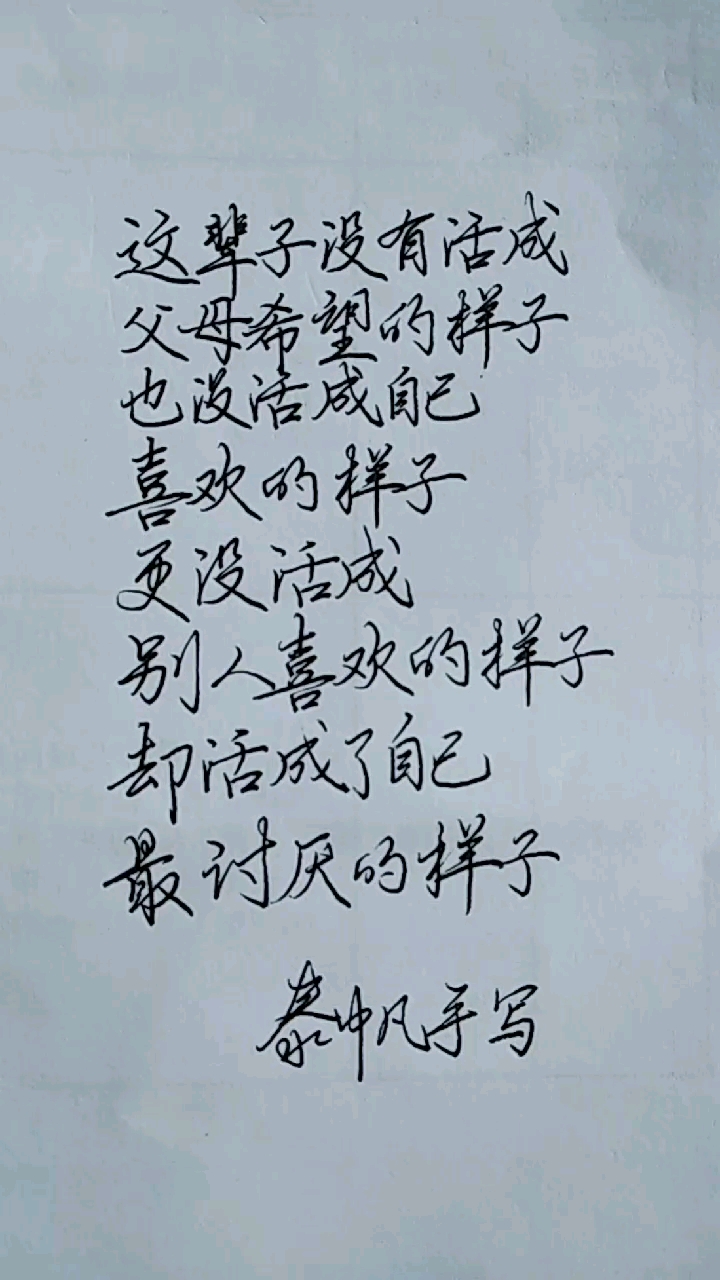 这辈子没有活成
父母希望的样子
也没活成自己
喜欢的样子
更没活成
别人喜欢的样子
却活成了自己
最讨厌的样子
泰中凡手写